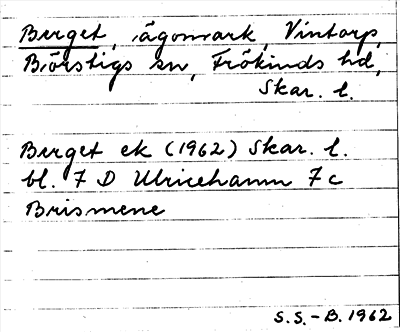 Berget, ägomark, Vintorp,
Börstigs sn, Frökinds hd,
Skar. l.
Berget ek (1962) Skar. l.
bl. 7 D Ulricehamn 7 c
Brismene
S.S. - B. 1962